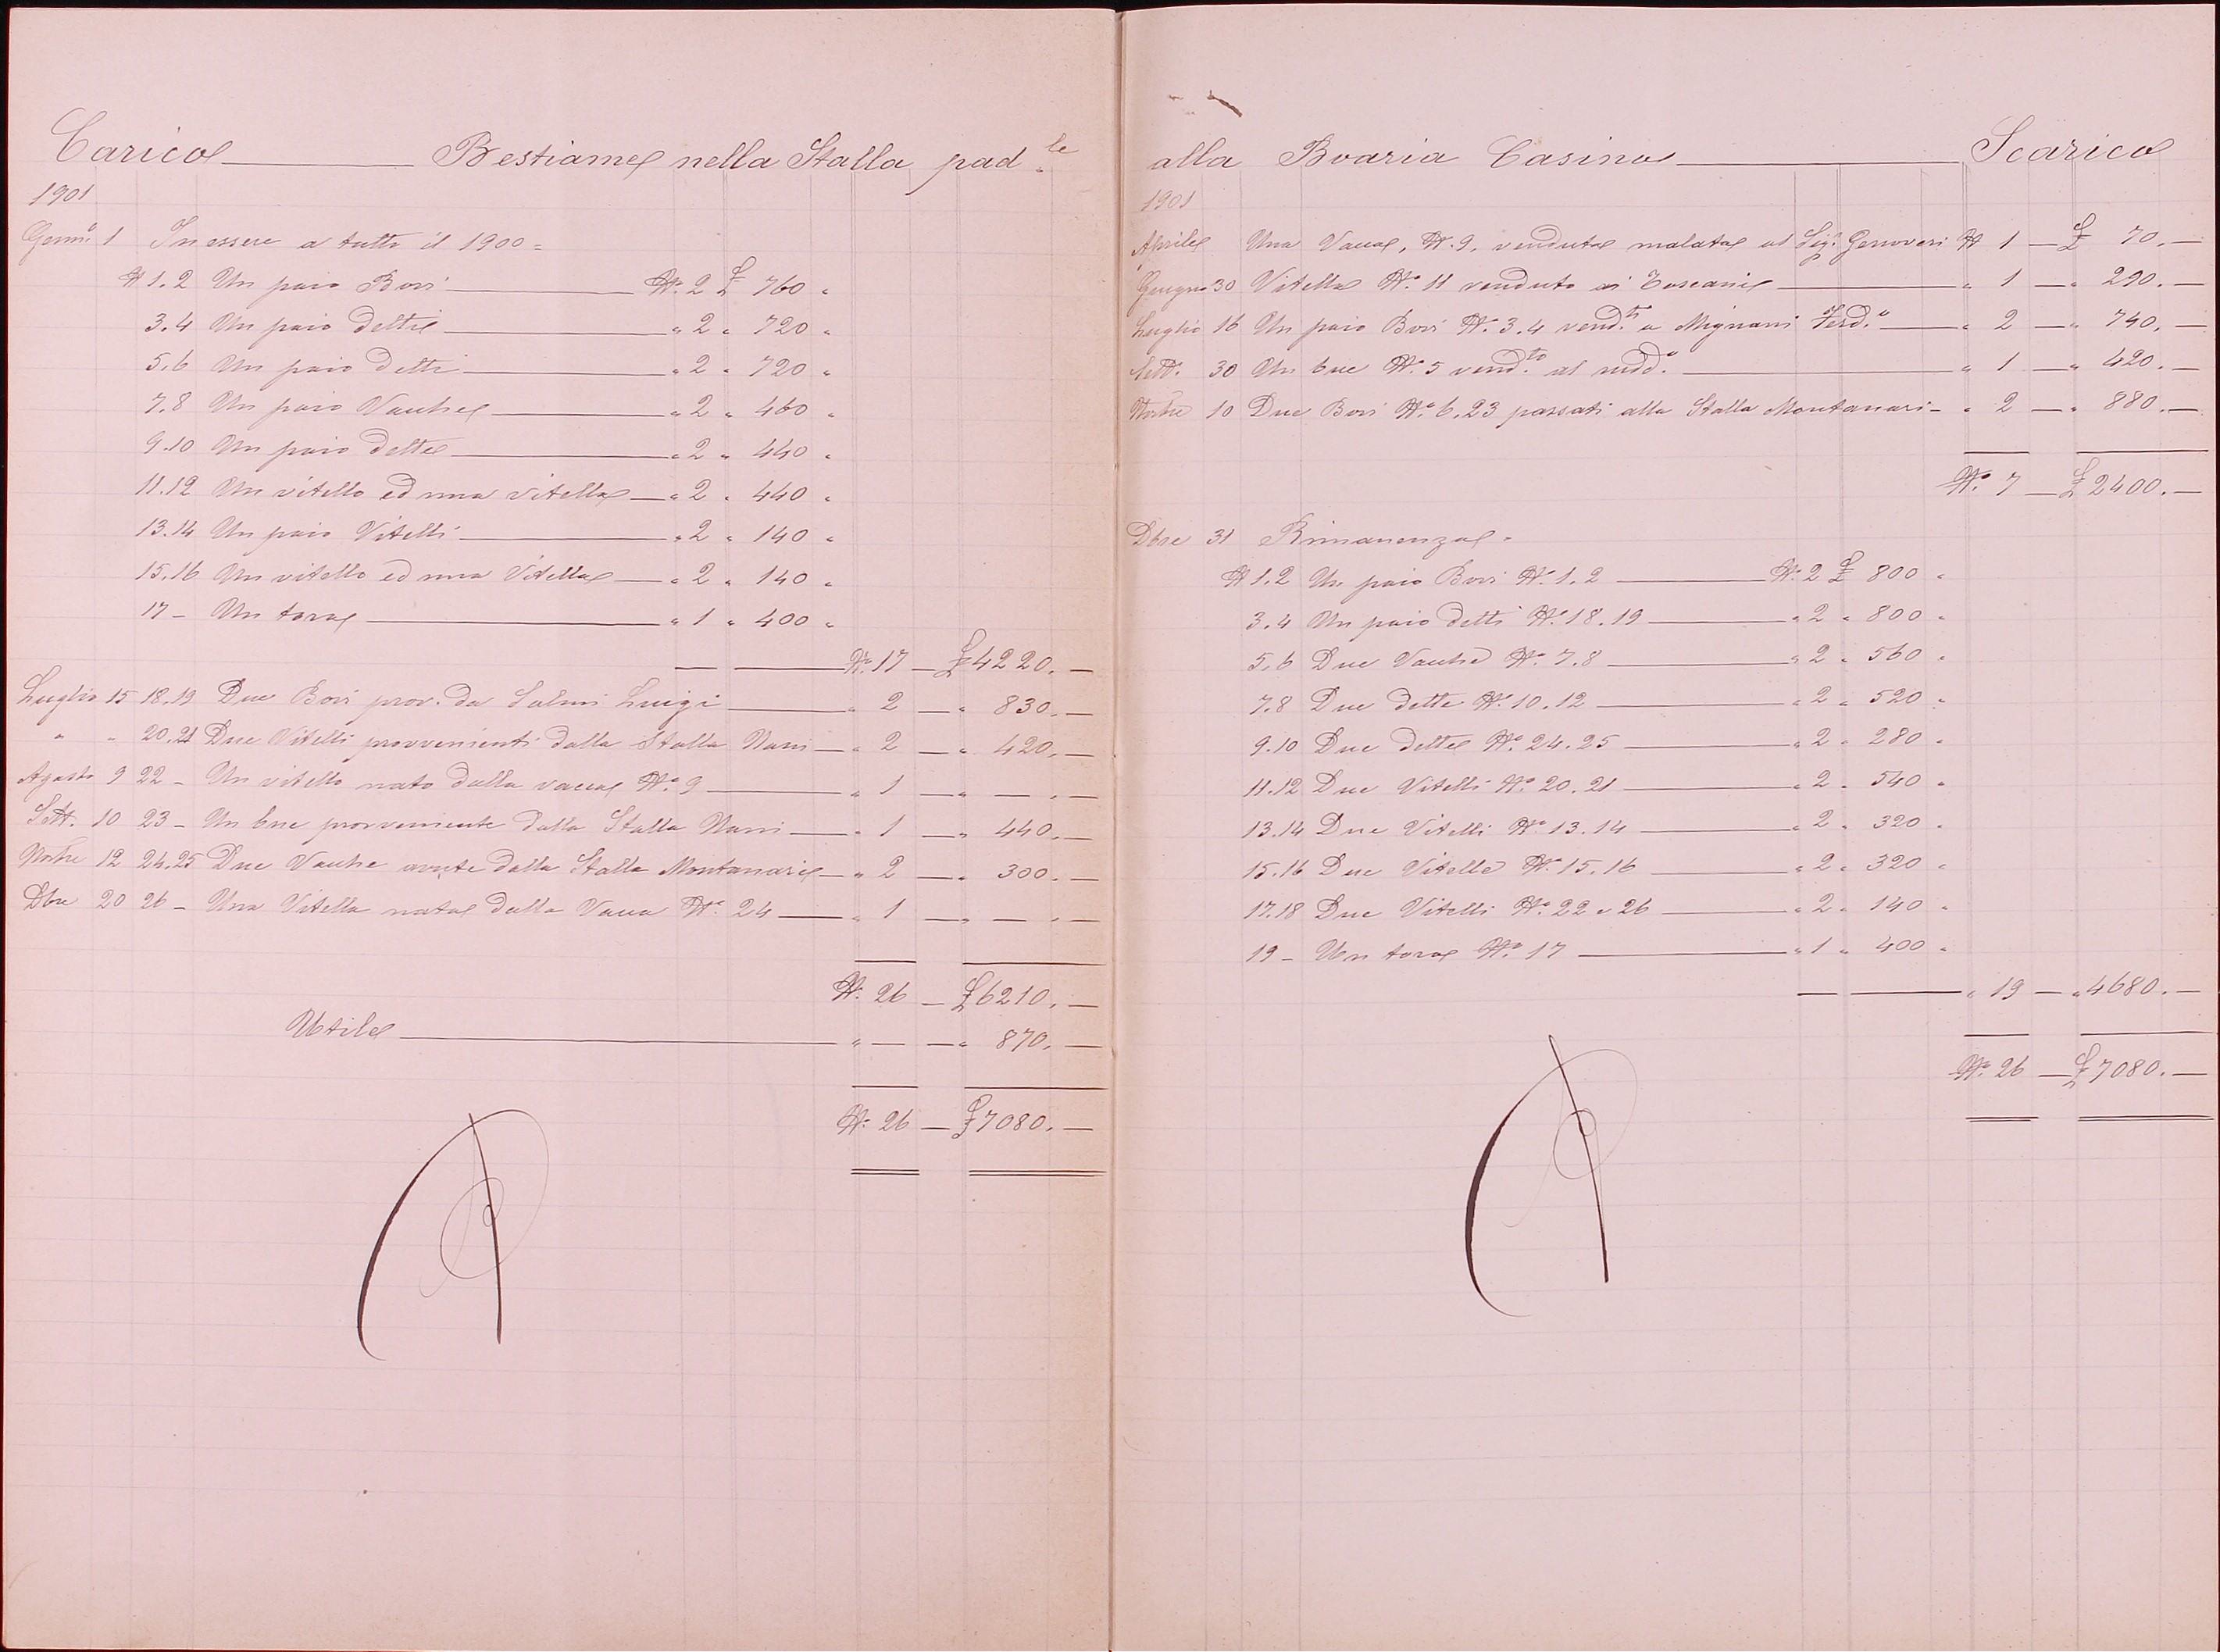 Carico Bestiame nella Stalla pad.le
1901
Genn.o 1 In essere a tutto il 1900 =
N 1.2 Un paio Bovi N.o 2 £ 760 "
3.4 Un paio detti " 2 " 720 "
5.6 Un paio detti " 2 " 720 "
7.8 Un paio Vacche " 2 " 460 "
9.10 Un paio dette " 2 " 440 "
11.12 Un vitello ed una vitella " 2 " 440 "
13.14 Un paio Vitelli " 2 " 140 "
15.16 Un vitello ed una Vitella " 2 " 140 "
17 - Un toro " 1 " 400 "
N.o 17 — £ 4220. —
Luglio 15 18.19 Due Bovi prov. da Salmi Luigi " 2 — " 830. —
" " 20.21 Due Vitelli provvenienti dalla Stalla Nani " 2 — " 420. —
Agosto 9 22 - Un vitello nato dalla vacca N.o 9 " 1 — " — . —
Sett. 10 23 - Un bue provveniente dalla Stalla Nani " 1 — " 440. —
Novbre 12 24.25 Due Vacche avute dalla Stalla Montanari " 2 — " 300. —
Dbre 20 26 - Una Vitella nata dalla Vacca N.o 24 " 1 — " — . —
N.o 26 — £ 6210. —
Utile " — — " 870. —
N.o 26 — £ 7080. —
alla Boaria Casino Scarico
1901
Aprile Una Vacca, N. 9, venduta malata al Sig.r Genovesi N 1 — £ 70. —
Giugno 30 Vitello N.o 11 venduto ai Toscani " 1 — " 290. —
Luglio 16 Un paio Bovi N.o 3.4 vend.ti a Mignani Ferd.o " 2 — " 740. —
Sett. 30 Un bue N.o 5 vend.to al sudd.o " 1 — " 420. —
Novbre 10 Due Bovi N.o 6.23 passati alla Stalla Montanari " 2 — " 880. —
N.o 7 — £ 2400. —
Dbre 31 Rimanenza =
N 1.2 Un paio Bovi N.o 1.2 N.o 2 £ 800 "
3.4 Un paio detti N.o 18.19 " 2 " 800 "
5.6 Due Vacche N.o 7.8 " 2 " 560 "
7.8 Due dette N.o 10.12 " 2 " 520 "
9.10 Due dette N.o 24.25 " 2 " 280 "
11.12 Due Vitelli N.o 20.21 " 2 " 540 "
13.14 Due Vitelli N.o 13.14 " 2 " 320 "
15.16 Due Vitelle N.o 15.16 " 2 " 320 "
17.18 Due Vitelli N.o 22 e 26 " 2 " 140 "
19 - Un toro N.o 17 " 1 " 400 "
" 19 — " 4680. —
N.o 26 — £ 7080. —